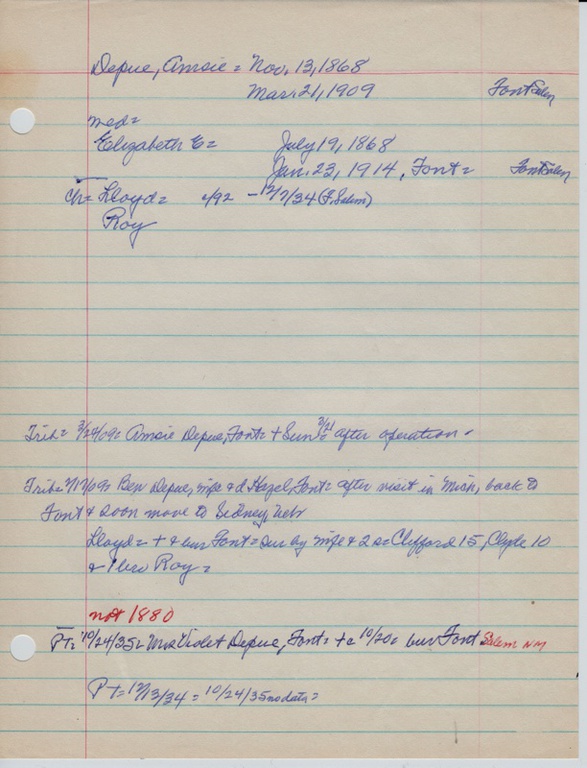 Depue, Amsie = Nov. 13, 1868
Mar. 21, 1909 Font Salem
med =
Elizabeth E = July 19, 1868
Jan. 23, 1914, Font = Font Salem
Ch = Lloyd = c/92 - 12/7/34 (F. Salem)
Roy
Trib = 3/24/09 = Amsie Depue, Font = + Sun 3/21 = after operation.
Trib = Ben Depue, wife & d Hazel, Font = after visit in Mich, back to
Font & soon move to Sidney, Neb
Lloyd = + & bur Font = sur by wife & 2 s = Clifford 15, Clyde 10
& 1 bro Roy =
not 1880
PT = 10/24/35 = Mrs Violet Depue, Font = + c 10/20 = bur Font Salem NM
PT = 12/13/34 = 10/24/35 no data =